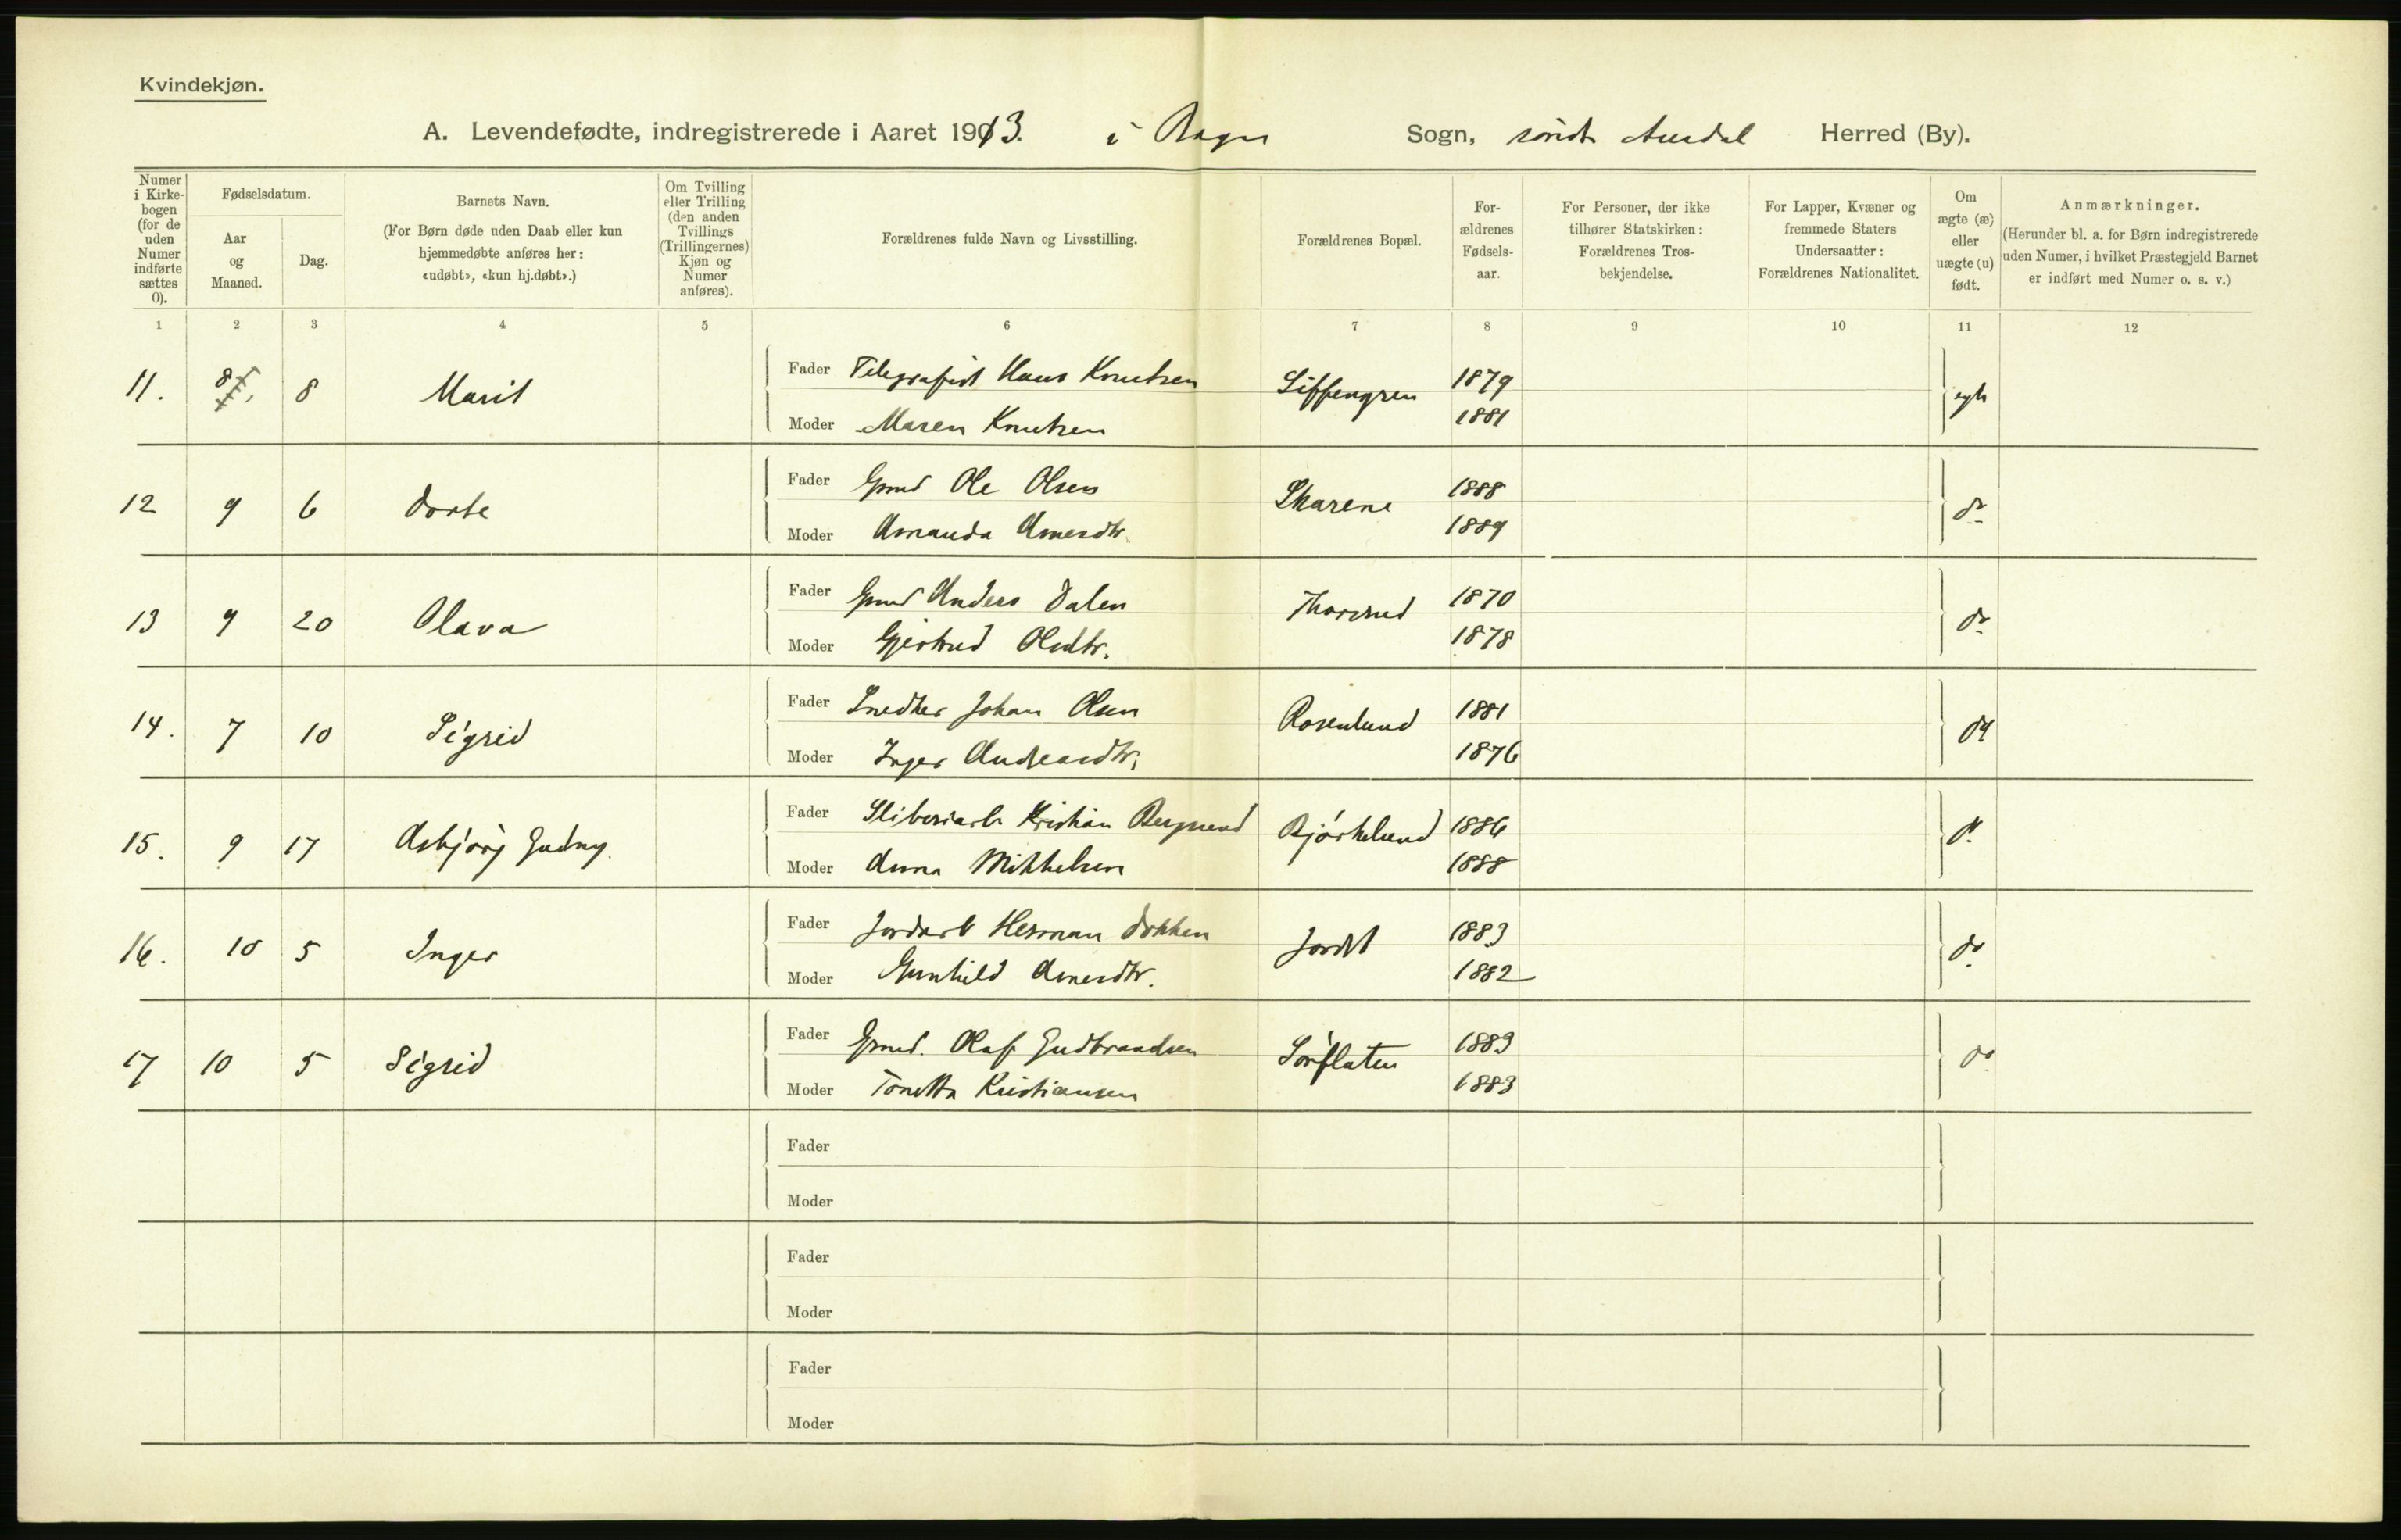 Kvindekjøn.
A. Levendefødte, indregistrerede i Aaret 1913. i Bagn Sogn, søndr Aurdal Herred (By).
Numer i Kirkebogen (for de uden Numer indførte sættes 0).
Fødselsdatum.
Aar og Maaned.
Dag.
Barnets Navn.
(For Børn døde uden Daab eller kun hjemmedøbte anføres her: «udøbt», «kun hj.døbt».)
Om Tvilling eller Trilling (den anden Tvillings (Trillingernes) Kjøn og Numer anføres).
Forældrenes fulde Navn og Livsstilling.
Forældrenes Bopæl.
Forældrenes Fødselsaar.
For Personer, der ikke tilhører Statskirken: Forældrenes Trosbekjendelse.
For Lapper, Kvæner og fremmede Staters Undersaatter: Forældrenes Nationalitet.
Om ægte (æ) eller uægte (u) født.
Anmærkninger.
(Herunder bl. a. for Børn indregistrerede uden Numer, i hvilket Præstegjeld Barnet er indført med Numer o. s. v.)
1 2 3 4 5 6 7 8 9 10 11 12
11. 8 8 Marit Fader Telegrafist Hans Knutsen 1879
Moder Maren Knutsen 1881
12 9 6 Dorte Fader Gmd Ole Olsen Skarene 1888 do
Moder Amanda Arnesdtr. 1889
13 9 20 Olava Fader Gmd Anders Dalen Thorsrud 1870 do
Moder Gjertrud Olsdtr. 1878
14. 7 10 Sigrid Fader Snedker Johan Olsen Rosenlund 1881 do
Moder Inger Andreasdtr. 1876
15. 9 17 Asbjørg Gudny. Fader Sliberiarb Kristian Bergsrud Bjørkelund 1886 do
Moder Anna Mikkelsen 1888
16. 10 5 Inger Fader Jordarb Herman Dokken Jordet 1883 do
Moder Gunhild Arnesdtr. 1882
17 10 5 Sigrid Fader Gmd. Olaf Gudbrandsen Sørflaten 1883 do
Moder Tonetta Kristiansen 1883
Fader
Moder
Fader
Moder
Fader
Moder